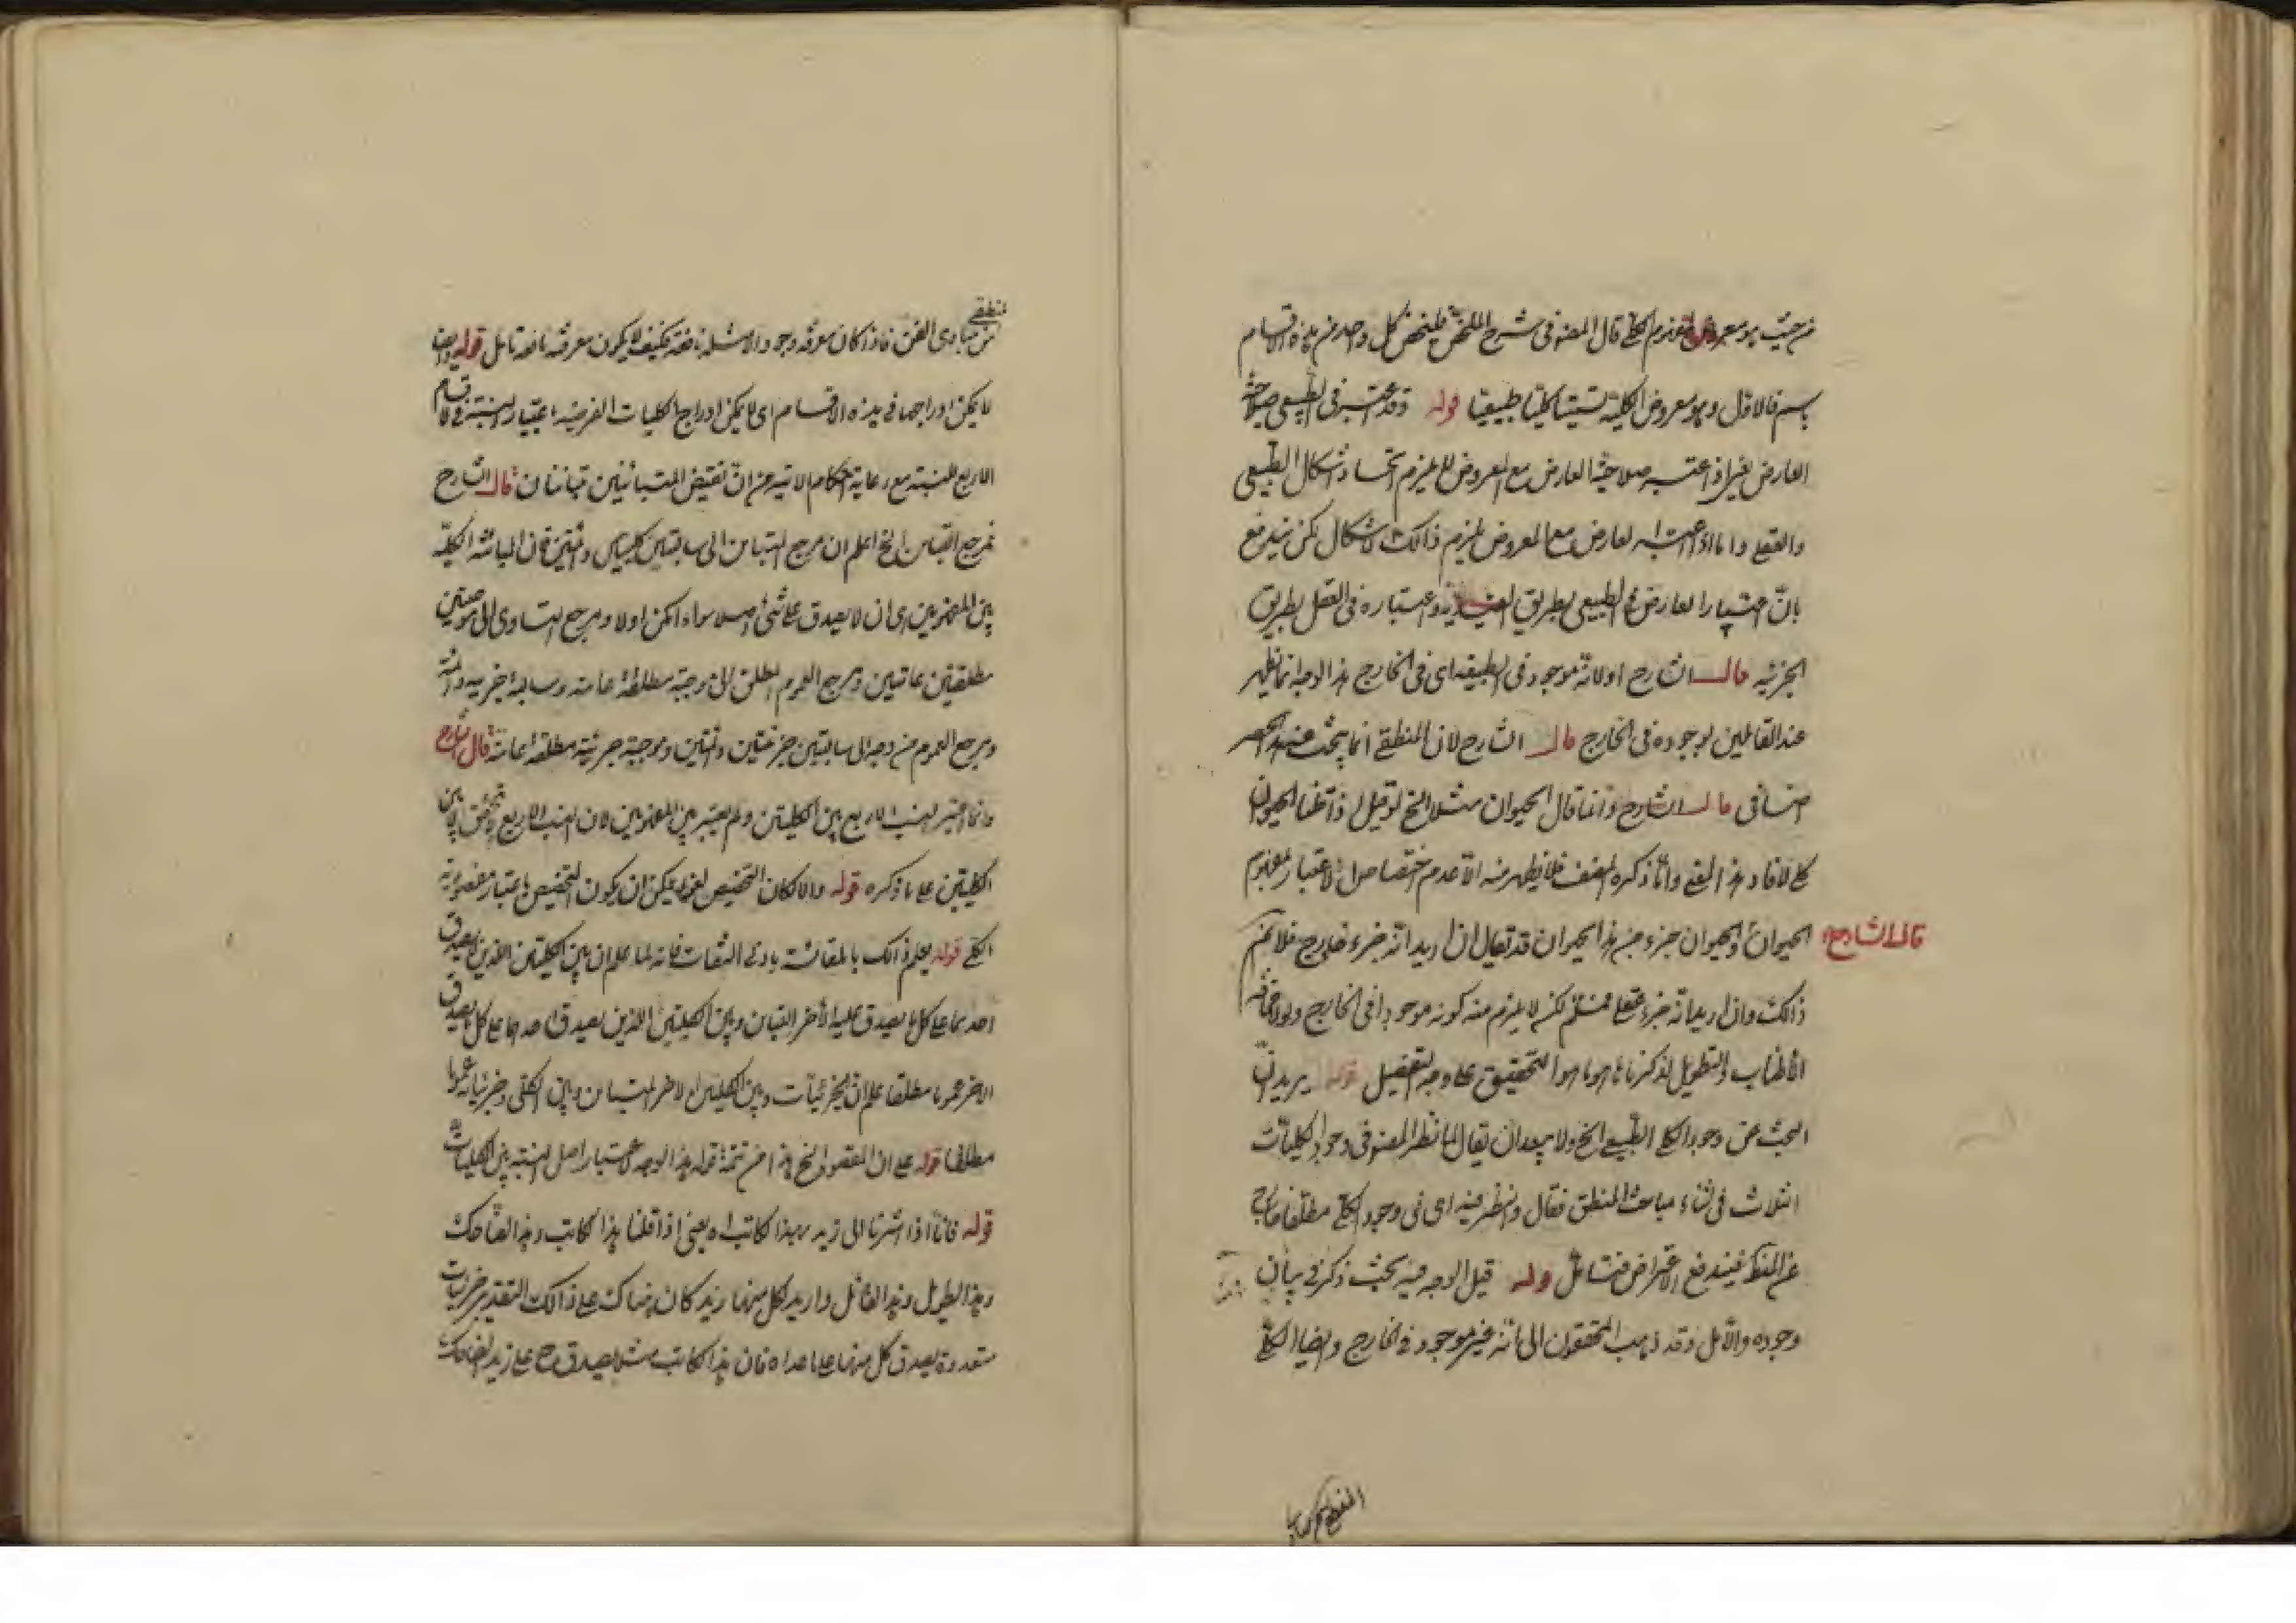 من حيث هو معروض لمفهوم الكلي قال المصنف في شرح الملخص فليخص كل واحد من هذه الاقسام
باسم فالاول وهو معروض الكلية نسميه كليا طبيعيا قوله وقد اعتبر في الطبيعي صلاحية
العارض لغيراذ اعتبر صلاحية العارض مع المعروض لم يلزم اتحاد اشكال الطبيعي
والعقلي واما اذا اعتبر العارض مع المعروض يلزم ذالك الاشكال لكن يندفع
بان اعتبار العارض في الطبيعي بطريق القيدية واعتباره في العقلي بطريق
الجزئية قال الشارح اولانه موجود في الطبيعة اي في الخارج هذا الوجه انما يظهر
عند القائلين بوجوده في الخارج قال الشارح لان المنطقي انما يبحث عنه الحصر
اضافي قال الشارح وانما قال الحيوان مثلا الخ لو قيل اذا قلنا الحيوان
كلي لافاد هذا المعنى واما ذكره المصنف فلا يظهر منه الا عدم اختصاص الاعتبار بمفهوم
الحيوان والحيوان جزء من هذا الحيوان قد يقال ان اريد انه جزء خارجي فلا نم
قال الشارح
ذالك وان اريد انه جزء عقلي فمسلم لكن لا يلزم منه كونه موجودا في الخارج ولولا مخافة
الاطناب والتطويل لذكرنا ما هو التحقيق على وجه التفصيل قوله يريد ان
البحث عن وجود الكلي الطبيعي الخ ولا يبعد ان يقال لما نظر المصنف في وجود الكليات
الثلاث في اثناء مباحث المنطق فقال والنظر فيه اي في وجود الكلي مطلقا خارج
عن المنطق فيندفع الاعتراض فتامل قوله قيل الوجه فيه بحث ذكر في بيان
وجوده والا ول وقد ذهب المحققون الى انه غير موجود في الخارج وايضا الكلي
المنطقي
من مبادى الفن فاذا كان معرفة وجود الامثلة نافعة فكيف لا يكون معرفته نافعة تامل قوله وايضا
لا يمكن ادراجها في هذه الاقسام اي لا يمكن ادراج الكليات الفرضية باعتبار النسبة في الاقسام
الاربع للنسبة مع رعاية احكام الاتية من ان نقيض المتباينين متباينان قال الشارح
فمرجع التباين الخ اعلم ان مرجع التباين الى سالبتين كليتين دائمتين فان المباينة الكلية
بين المفهومين اي ان لا يصدق على شئ اصلا سواء امكن اولا ومرجع التساوى الى موجبتين
مطلقتين عامتين ومرجع العموم المطلق الى موجبة مطلقة عامة وسالبة جزئية دائمة
ومرجع العموم من وجه الى سالبتين جزئيتين دائمتين وموجبة جزئية مطلقة عامة قال الشارح
وانما اعتبر النسب الاربع بين الكليتين ولم يعتبر بين المفهومين لان النسب الاربع لا يتحقق الا بين
الكليتين على ما ذكره قوله والا لكان التخصيص لغوا يمكن ان يكون التخصيص باعتبار مقصودية
الكلي قوله يعلم ذالك بالمقائسة بادنى التفات فانه لما علم ان بين الكليتين الذين يصدق
احدهما على كل ما يصدق عليه الآخر التباين وبين الكليتين الذين يصدق احدهما على كل ما يصدق
الآخر عموما مطلقا علم ان الجزئيات وبين الكليين الآخر المتباين وبين الكلي وجزئياته عموما
مطلقا قوله على ان المقصود الخ هذا من تتمة قوله هذا الوجه لاعتبار اصل النسبة بين الكليات
قوله فانا اذا اشرنا الى زيد بهذا الكاتب اه يعني اذا قلنا هذا الكاتب وهذا الضاحك
وهذا الطويل وهذا القائل واريد لكل منها زيد كان هناك على ذالك التقدير جزئيات
متعددة يصدق كل منها على ما عداه فان هذا الكاتب مثلا يصدق ح على زيد الضاحك